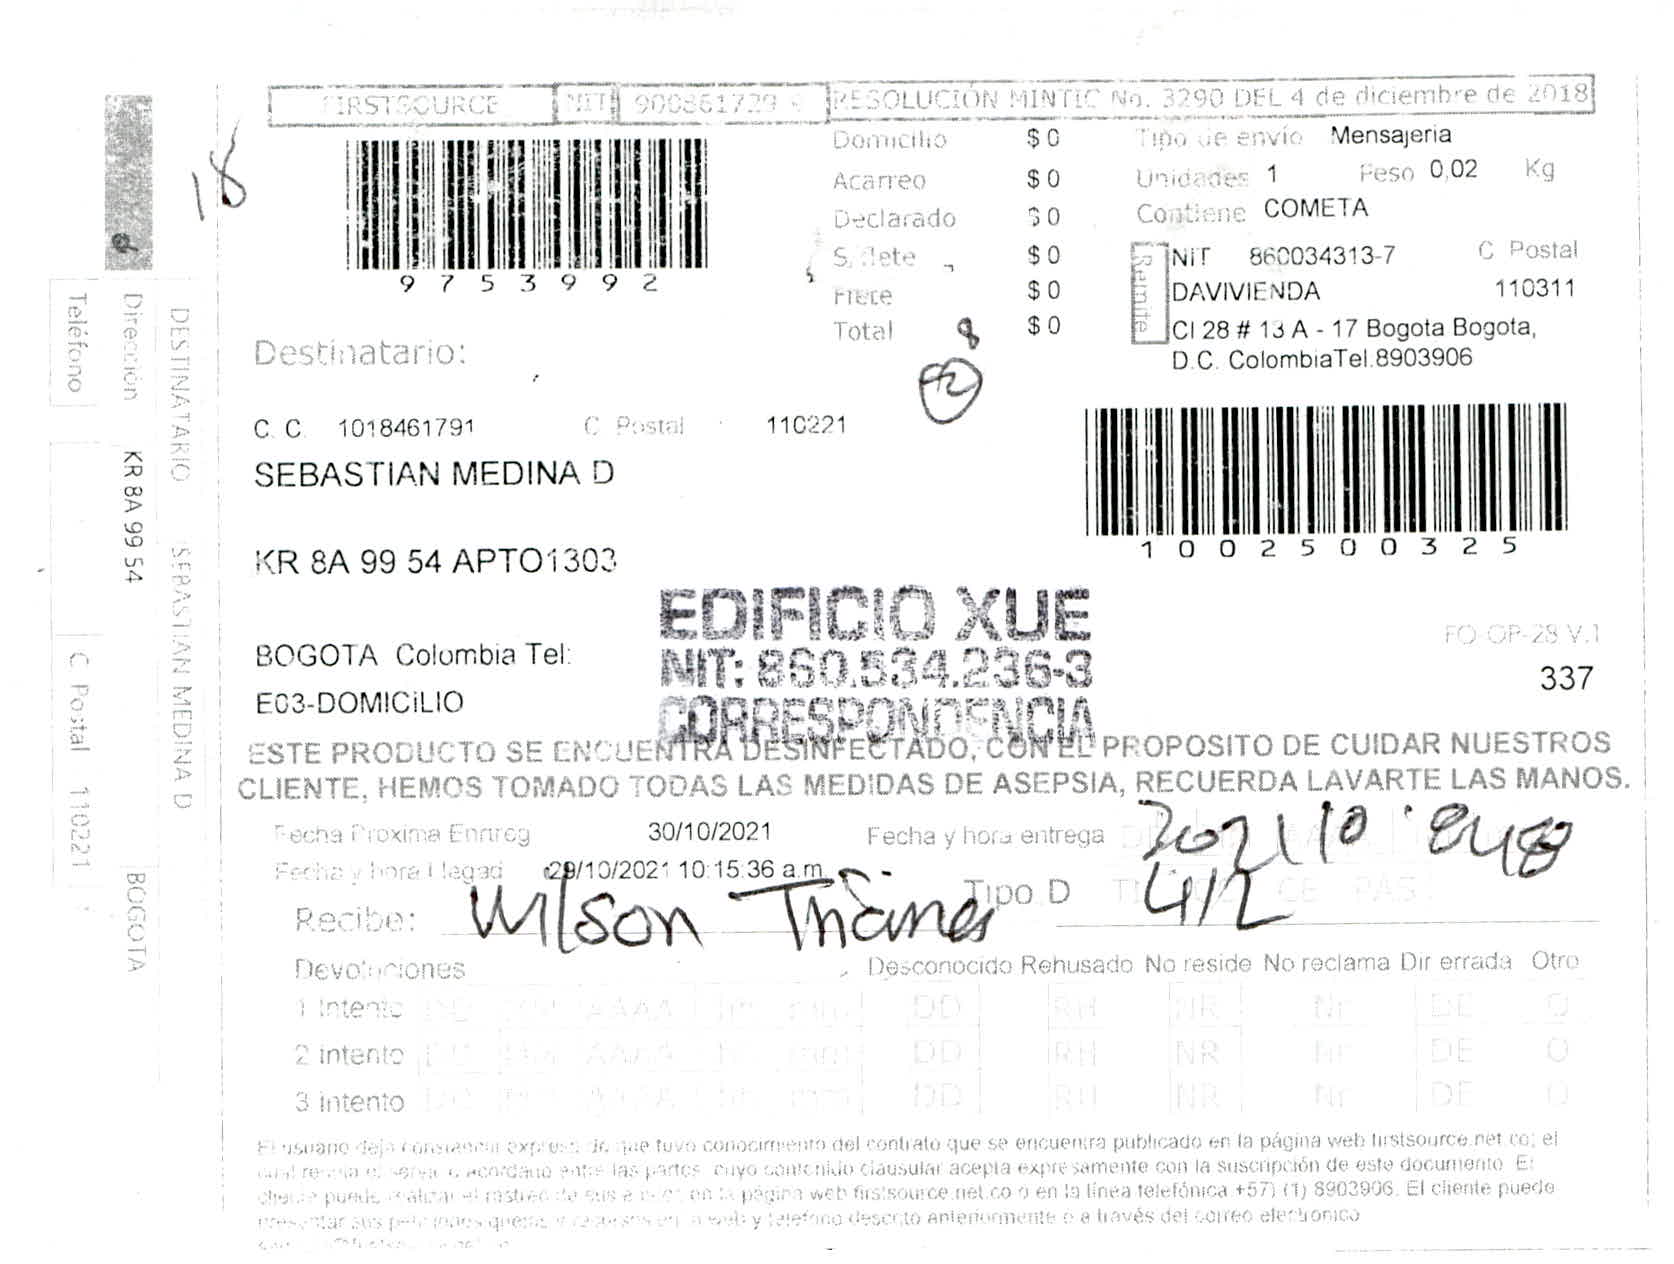 FIRSTSOURCE NIT 900861729 RESOLUCIÓN MINTIC No. 3290 DEL 4 de diciembre de 2018
18
9753992
Domicilio $ 0
Acarreo $ 0
Declarado $ 0
$ 0
Flete $ 0
Total $ 0
8
Tipo de envío Mensajeria
Unidades 1 Peso 0,02 Kg
Contiene COMETA
Remite
NIT 860034313-7 C Postal
DAVIVIENDA 110311
Cl 28 # 13 A - 17 Bogota Bogota,
D.C. ColombiaTel.8903906
1002500325
Destinatario:
C. C. 1018461791 C Postal 110221
SEBASTIAN MEDINA D
KR 8A 99 54 APTO1303
BOGOTA Colombia Tel:
E03-DOMICiLIO
EDIFICIO XUE
NIT: 860.534.236-3
CORRESPONDENCIA
FO-OP-28 V.1
337
ESTE PRODUCTO SE ENCUENTRA DESINFECTADO, CON EL PROPOSITO DE CUIDAR NUESTROS
CLIENTE, HEMOS TOMADO TODAS LAS MEDIDAS DE ASEPSIA, RECUERDA LAVARTE LAS MANOS.
Fecha Proxima Entreg 30/10/2021 Fecha y hora entrega
Fecha y hora Llegad 29/10/2021 10:15:36 a.m.
Recibe: Wilson Tipo D 412
Devoluciones Desconocido Rehusado No reside No reclama Dir errada Otro
1 Intento AAAA hh mm DD RH NR Nr DE O
2 intento AAAA mm DD RH NR Nr DE O
3 intento AAAA hh mm DD RH NR Nr DE O
El usuario deja constancia expresa de que tuvo conocimiento del contrato que se encuentra publicado en la página web firstsource.net.co; el
entre las partes, cuyo contenido clausular acepta expresamente con la suscripción de este documento. El
cliente puede realizar el rastreo de sus en la página web firstsource.net.co o en la línea telefónica +57) (1) 8903906. El cliente puede
presentar sus peticiones quejas y recursos en la web y telefono descrito anteriormente o a través del correo electronico
DESTINATARIO SEBASTIAN MEDINA D
Dirección KR 8A 99 54 BOGOTA
Teléfono C Postal 110221